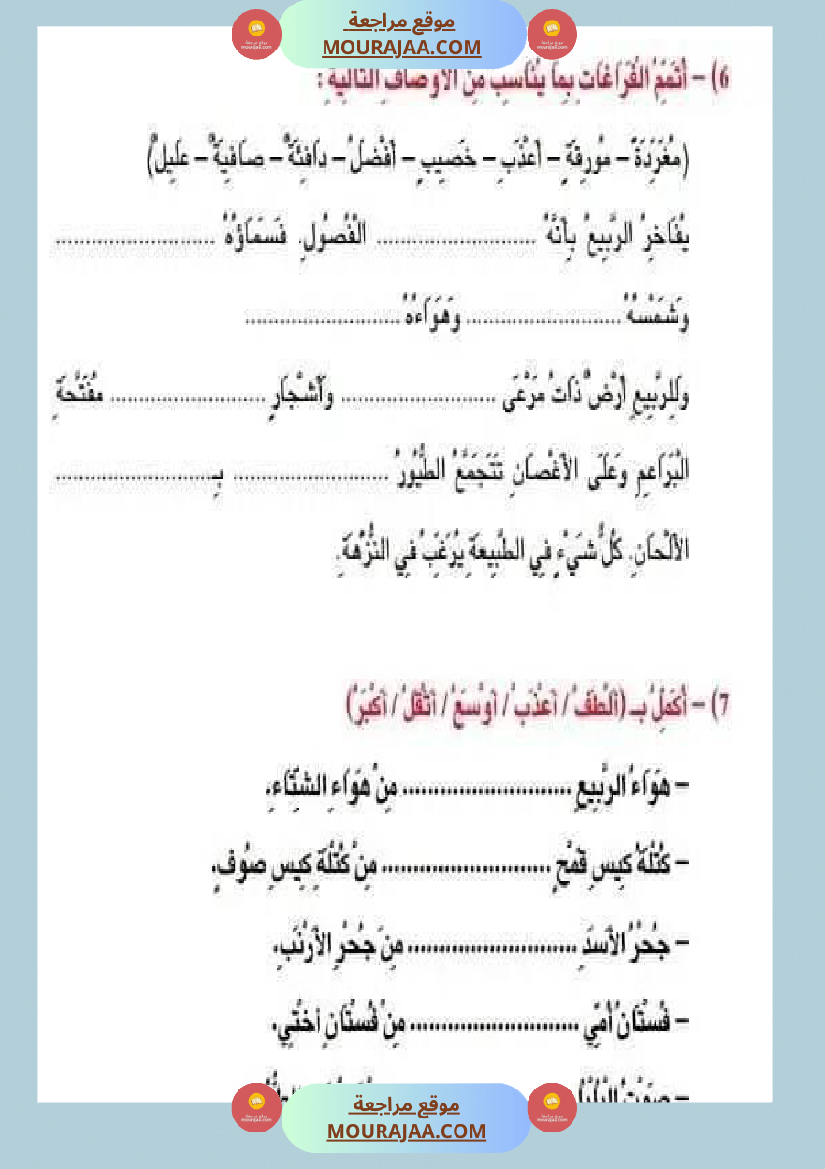 موقع مراجعة
MOURAJAA.COM
6) – أُتَمِّمُ الْفَرَاغَاتِ بِمَا يُنَاسِبُ مِنَ الْأَوْصَافِ التَّالِيَةِ :
(مُغَرِّدَةٌ – مُورِقَةٍ – أَعْذَبِ – خَصِيبٍ – أَفْضَلُ – دَافِئَةٌ – صَافِيَةٌ – عَلِيلٌ)
يُفَاخِرُ الرَّبِيعُ بِأَنَّهُ ........................... الْفُصُولِ. فَسَمَاؤُهُ ...........................
وَشَمْسُهُ ........................... وَهَوَاءُهُ ...........................
وَلِلرَّبِيعِ أَرْضٌ ذَاتُ مَرْعَى ........................... وَأَشْجَارٍ ........................... مُفَتَّحَةِ
الْبَرَاعِمِ وَعَلَى الْأَغْصَانِ تَتَجَمَّعُ الطُّيُورُ ........................... بِـ...........................
الْأَلْحَانِ. كُلُّ شَيْءٍ فِي الطَّبِيعَةِ يُرَغِّبُ فِي النُّزْهَةِ.
7) – أُكْمِلُ بـ (أَلْطَفُ / أَعْذَبُ / أَوْسَعُ / أَثْقَلُ / أَكْبَرُ)
– هَوَاءُ الرَّبِيعِ ........................... مِنْ هَوَاءِ الشِّتَاءِ.
– كُتْلَةُ كِيسِ قَمْحٍ ........................... مِنْ كُتْلَةِ كِيسِ صُوفٍ.
– جُحْرُ الْأَسَدِ ........................... مِنَ جُحْرِ الْأَرْنَبِ.
– فُسْتَانُ أُمِّي ........................... مِنْ فُسْتَانِ أُخْتِي.
– صَوْتُ
موقع مراجعة
MOURAJAA.COM